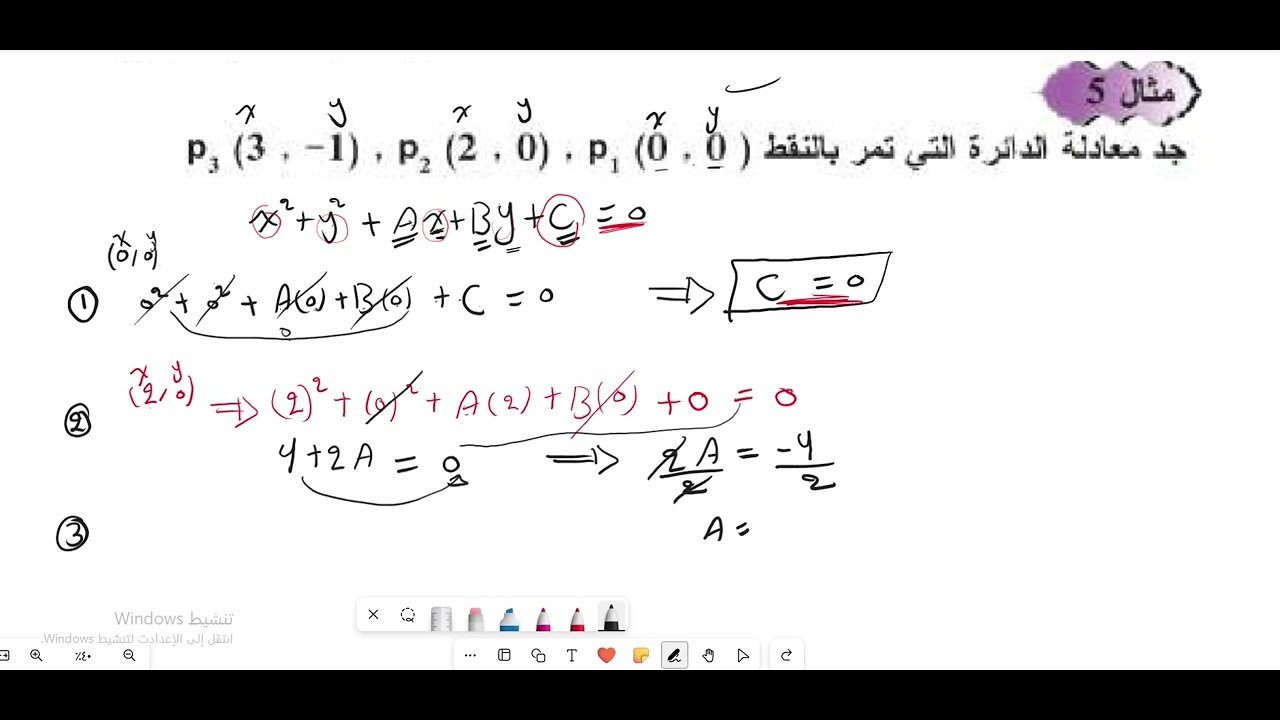 مثال 5
x y x y x y
جد معادلة الدائرة التي تمر بالنقط p₁ (0 , 0) , p₂ (2 , 0) , p₃ (3 , −1)
x² + y² + Ax + By + C = 0
x y
(0, 0)
① 0² + 0² + A(0) + B(0) + C = 0 ⇒ C = 0
0
x y
② (2, 0) ⇒ (2)² + (0)² + A(2) + B(0) + 0 = 0
4 + 2A = 0 ⇒ 2A/2 = -4/2
③ A =
تنشيط Windows
انتقل إلى الإعدادت لتنشيط Windows.
٪٤٠
T